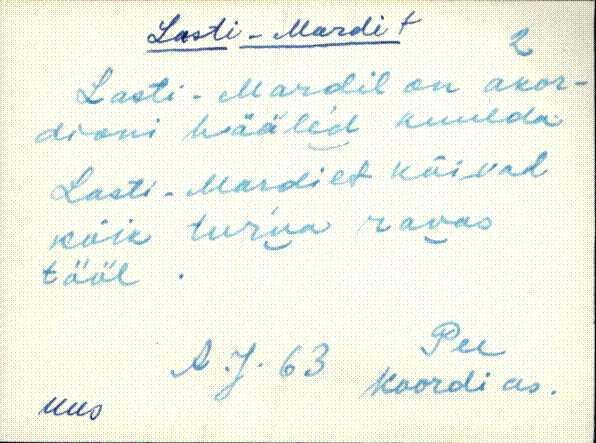 Lasti-Mardi t
2
Lasti-Mardil on akor-
dioni hääled kuulda
Lasti-Mardi et käivad
kõik turva ravas
tööl .
A. J. 63 Pee
Koordi as.
uus